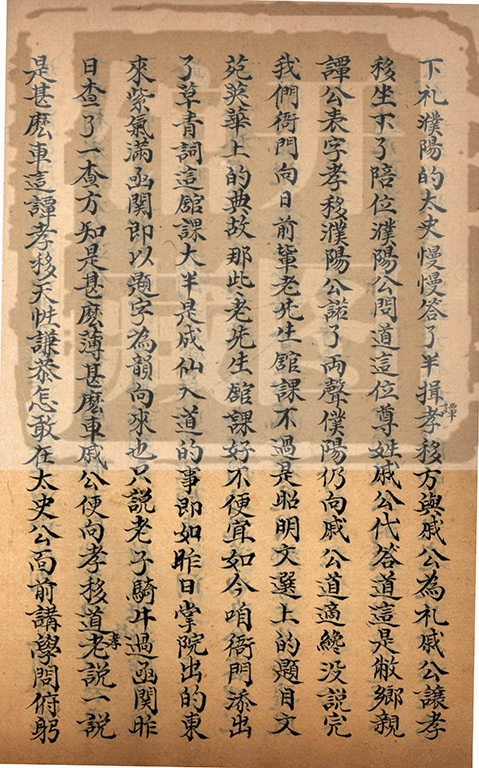 下礼濮陽的太史慢慢答了半揖孝移方與戚公為礼戚公讓孝
譚
移坐下了陪位濮陽公問道這位尊姓戚公代答道這是敝鄉親
譚公表字孝移濮陽公諾了兩聲僕陽仍向戚公道適纔没説完
我們衙門向日前輩老先生舘課不過是昭明文選上的題目文
苑英華上的典故那些老先生舘課好不便宜如今咱衙門添出
了草青詞這舘課大半是成仙入道的事即如昨日掌院出的東
來紫氣滿函關即以題字為韻向來也只説老子騎牛過函關昨
日查了一查方知是甚麽薄甚麽車戚公便向孝移道老説一説
孝
是甚麽車這譚孝移天性謙恭怎敢在太史公面前講學問俯躬